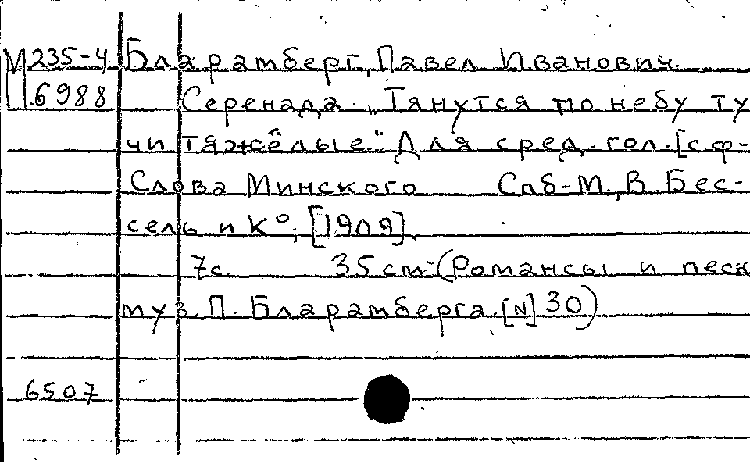 М 235-4 Бларамберг, Павел Иванович
6988 Серенада. „Тянутся по небу ту-
чи тяжёлые." Для сред. гол. [с ф-
Слова Минского Спб-М, В. Бес-
сель и К°, [1909].
7 с. 35 см. (Романсы и песн
муз. П. Бларамберга. [N] 30)
6507